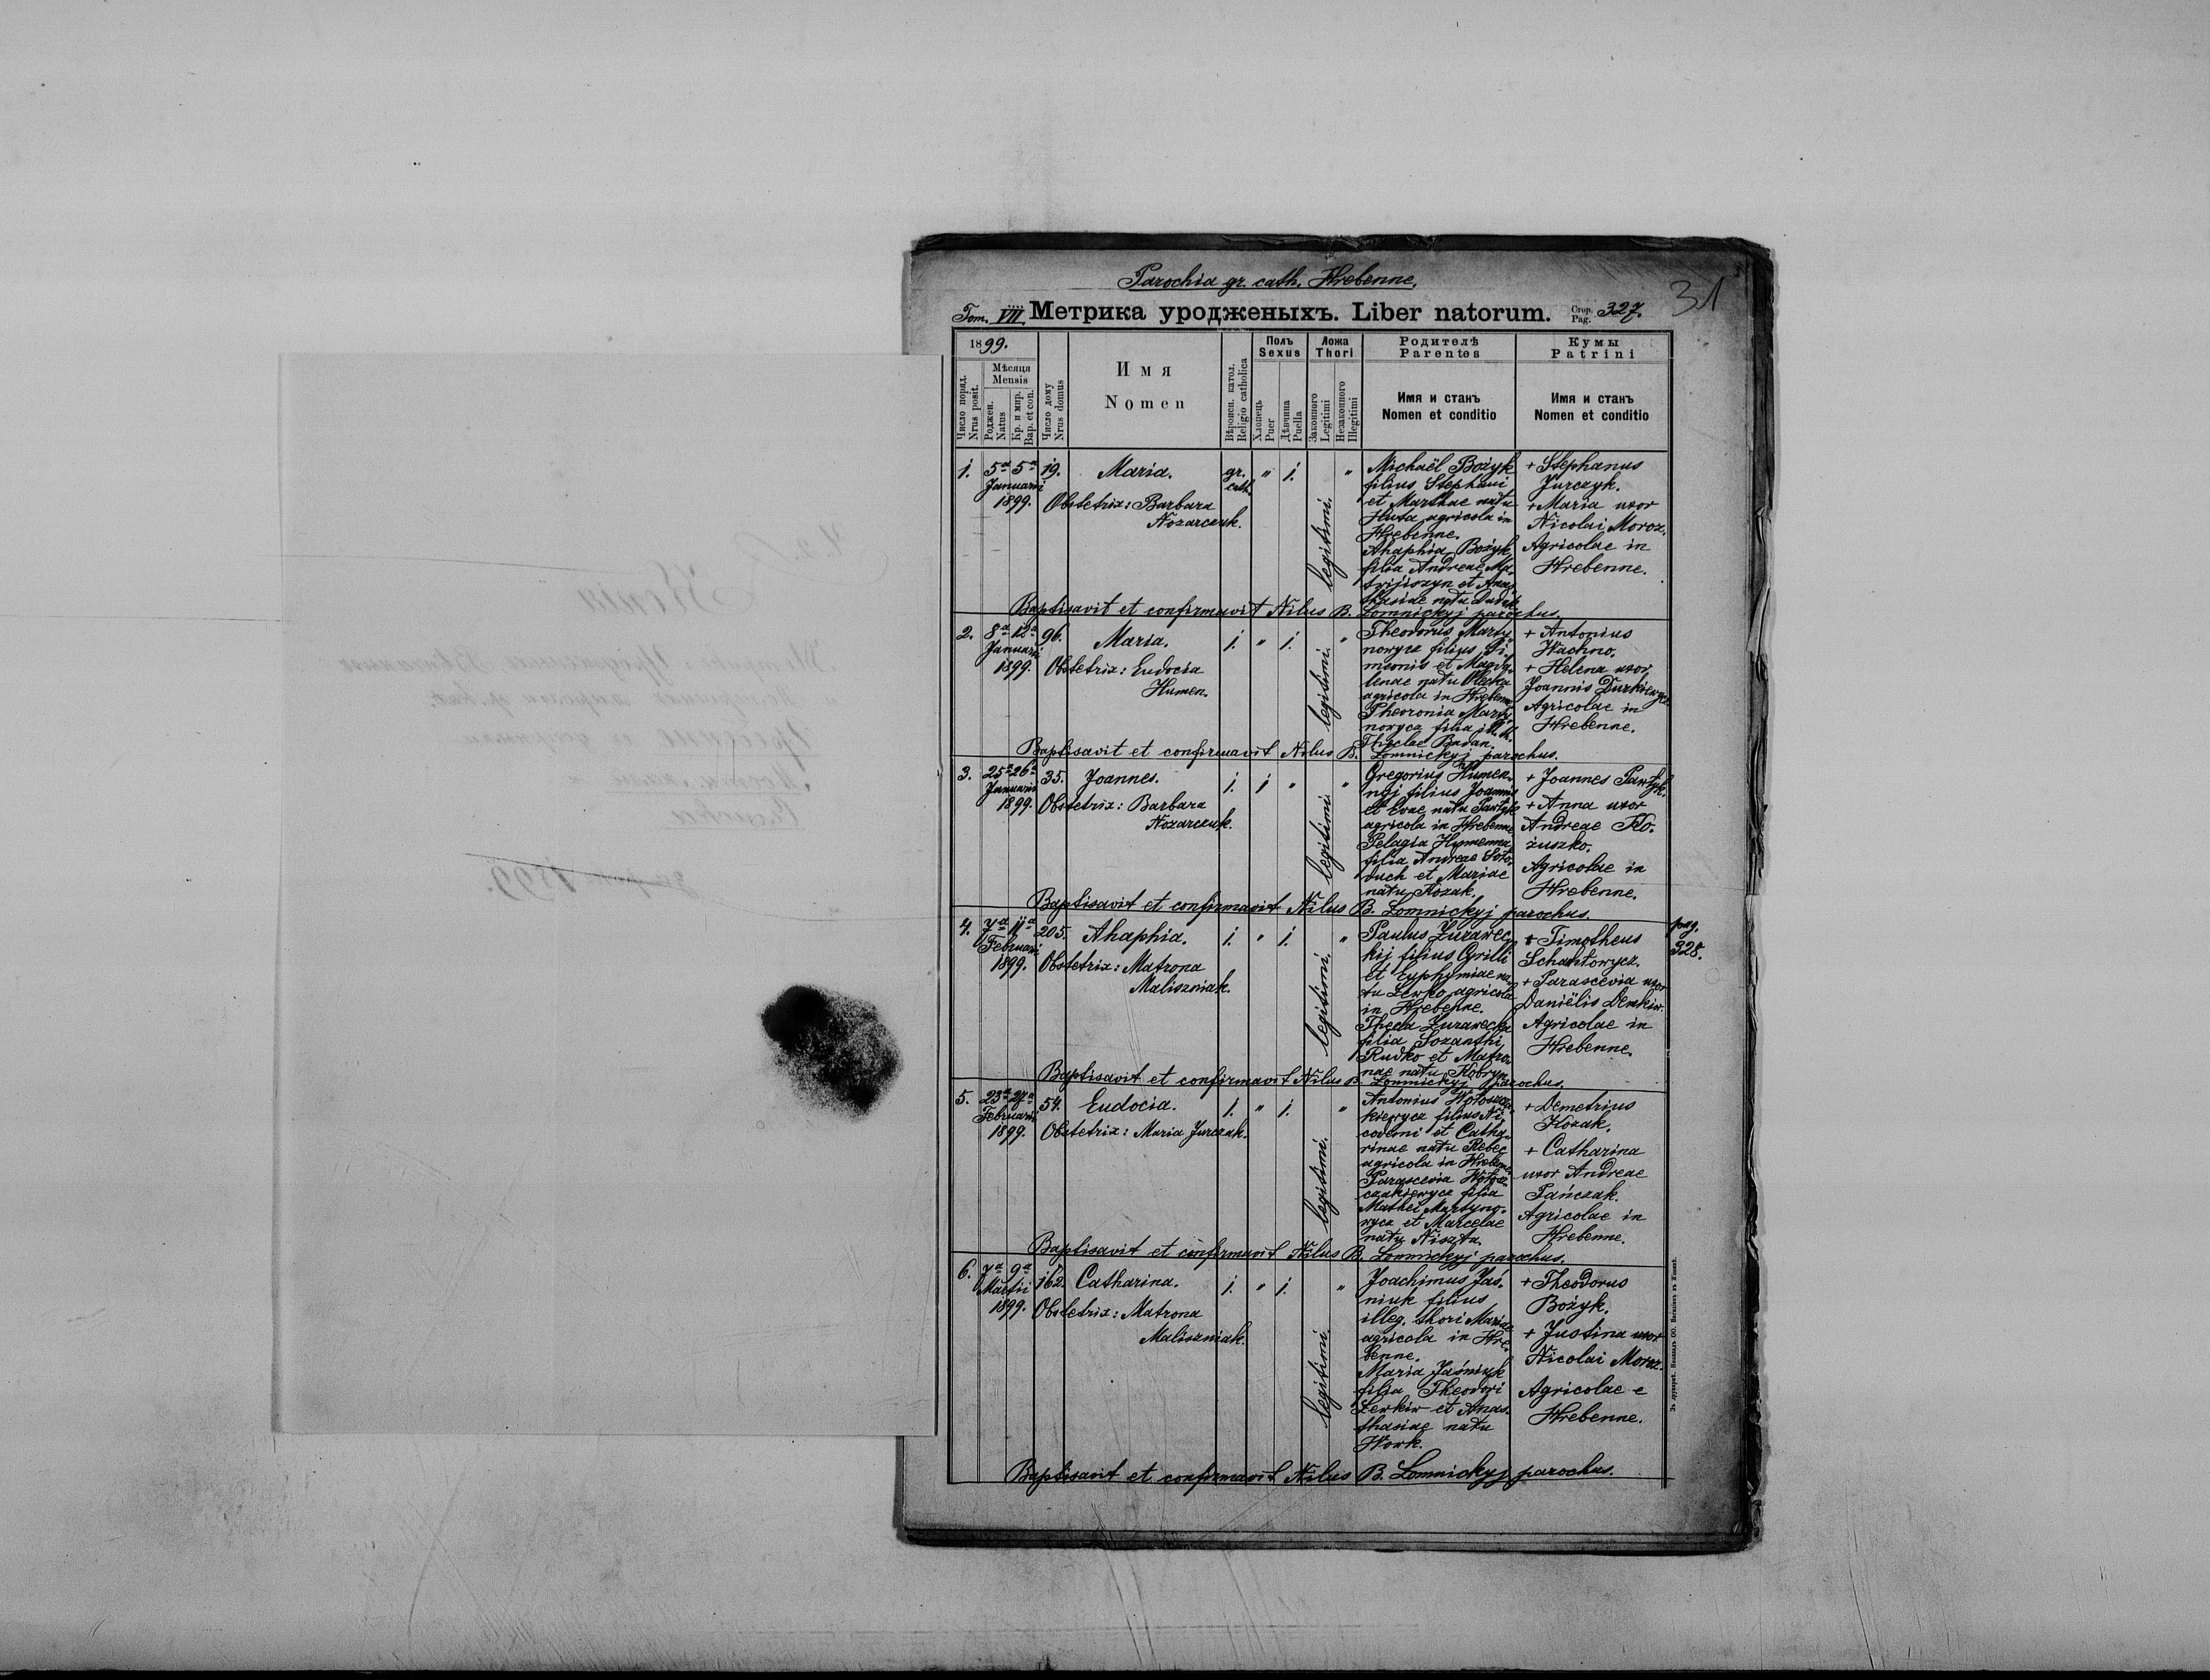 Parochia gr. cath. Hrebenne.
31
Tom. VII. Метрика уродженыхъ. Liber natorum. Стор. Pag. 327.
1899.
Число поряд. Nrus posit.
Мѣсяця Mensis
Роджен. Natus
Кр. и мир. Bap. et con.
Число дому Nrus domus
Имя
Nomen
Вѣроисп. катол. Religio catholica
Полъ
Sexus
Хлопець Puer
Дѣвчина Puella
Ложа
Thori
Законного Legitimi
Незаконного Illegitimi
Родителѣ
Parentes
Имя и станъ
Nomen et conditio
Кумы
Patrini
Имя и станъ
Nomen et conditio
1. 5ª 5ª Januarii 1899. 19. Maria. gr. cath. " 1. legitimi. "
Obstetrix: Barbara
Nozarczuk.
Michaël Bożyk
filius Stephani
et Marthae natu
Huta agricola in
Hrebenne.
Ahaphia Bożyk
filia Andreae
et
natu
+ Stephanus
Jurczyk.
+ Maria uxor
Nicolai Moroz.
Agricolae in
Hrebenne.
Baptisavit et confirmavit Nilus B. Lomnickyj parochus.
2. 8ª 12ª Januarii 1899. 96. Maria. 1. " 1. legitimi. "
Obstetrix: Eudocia
Humen.
Theodorus Marty-
norycz filius Si-
meonis et Magda-
lenae natu
agricola in Hrebenne.
Martynorycz filia
Theclae
+ Antonius
Wachno.
+ Helena uxor
Joannis Durkiewycz.
Agricolae in
Hrebenne.
Baptisavit et confirmavit Nilus B. Lomnickyj parochus.
3. 25ª 26ª Januarii 1899. 35. Joannes. 1. 1 " legitimi. "
Obstetrix: Barbara
Nozarczuk.
Gregorius Humen-
nyj filius Joannis
et Evae natu Pawlyk
agricola in Hrebenne.
Pelagia Humenna
filia Andreae Soło-
duch et Mariae
natu Kozak.
+ Joannes Pawlyk.
+ Anna uxor
Andreae Ko-
żuszko.
Agricolae in
Hrebenne.
Baptisavit et confirmavit Nilus B. Lomnickyj parochus.
4. 7ª 11ª Februarii 1899. 205. Ahaphia. 1. " 1. legitimi. "
Obstetrix: Matrona
Maliszniak.
Paulus Żurawec-
kij filius Cyrilli
et Euphymiae na-
tu Lewko agricola
in Hrebenne.
Thecla Żurawecka
filia Sozanthi
Rudko et Matro-
nae natu Kobryn.
+ Timotheus
Schantorycz.
+ Parascevia uxor
Daniëlis Demkiw.
Agricolae in
Hrebenne.
pag.
328.
Baptisavit et confirmavit Nilus B. Lomnickyj parochus.
5. 23ª 27ª Februarii 1899. 54. Eudocia. 1. " 1. legitimi. "
Obstetrix: Maria Jurczak.
Antonius
kiewycz filius Ni-
codemi et Catha-
rinae natu Rebec
agricola in Hrebenne.
Parascevia Wołosz-
czakiewycz filia
Mathei Martyno-
rycz et Marcelae
natu Niszta.
+ Demetrius
Kozak.
+ Catharina
uxor Andreae
Pańczak.
Agricolae in
Hrebenne.
Baptisavit et confirmavit Nilus B. Lomnickyj parochus.
6. 7ª 9ª Martii 1899. 162. Catharina. 1. " 1. legitimi. "
Obstetrix: Matrona
Maliszniak.
Joachimus Jaś-
niuk filius
illeg. thori Mariae
agricola in Hre-
benne.
Maria Jaśniuk
filia Theodori
Lewkiw et Anas-
thasiae natu
Work.
+ Theodorus
Bożyk.
+ Justina uxor
Nicolai Moroz.
Agricolae e
Hrebenne.
Baptisavit et confirmavit Nilus B. Lomnickyj parochus.